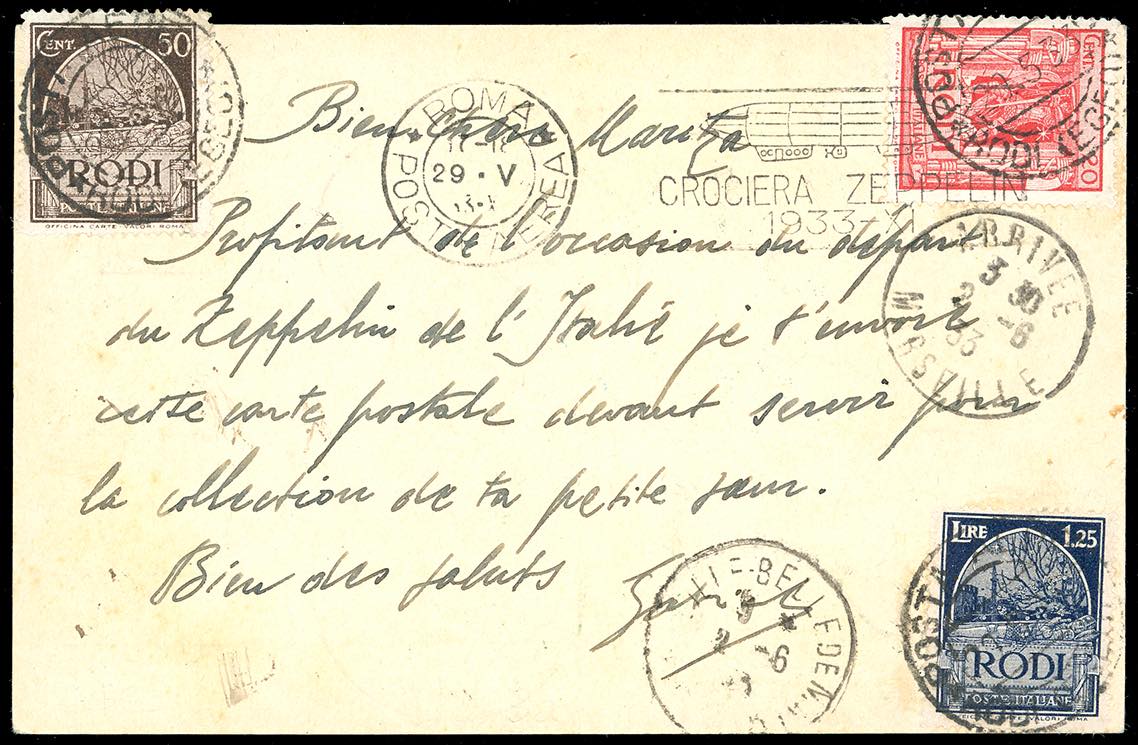 CENT. 50
RODI
POSTE ITALIANE
OFFICINA CARTE-VALORI ROMA
ROMA
29·V
POSTA AEREA
CROCIERA ZEPPELIN
1933-XI
CENT. 80
Bien chère Maritza
Profitant de l'occasion du départ
du Zeppelin de l'Italie je t'envoie
cette carte postale devant servir pour
la collection de ta petite sœur.
Bien des saluts
ARRIVEE
3 30
2 -6
33
MARSEILLE
LLE-BELLEDEMAI
3 *
2 -6
LIRE 1.25
POSTA
RODI
POSTE ITALIANE
OFFICINA CARTE-VALORI ROMA